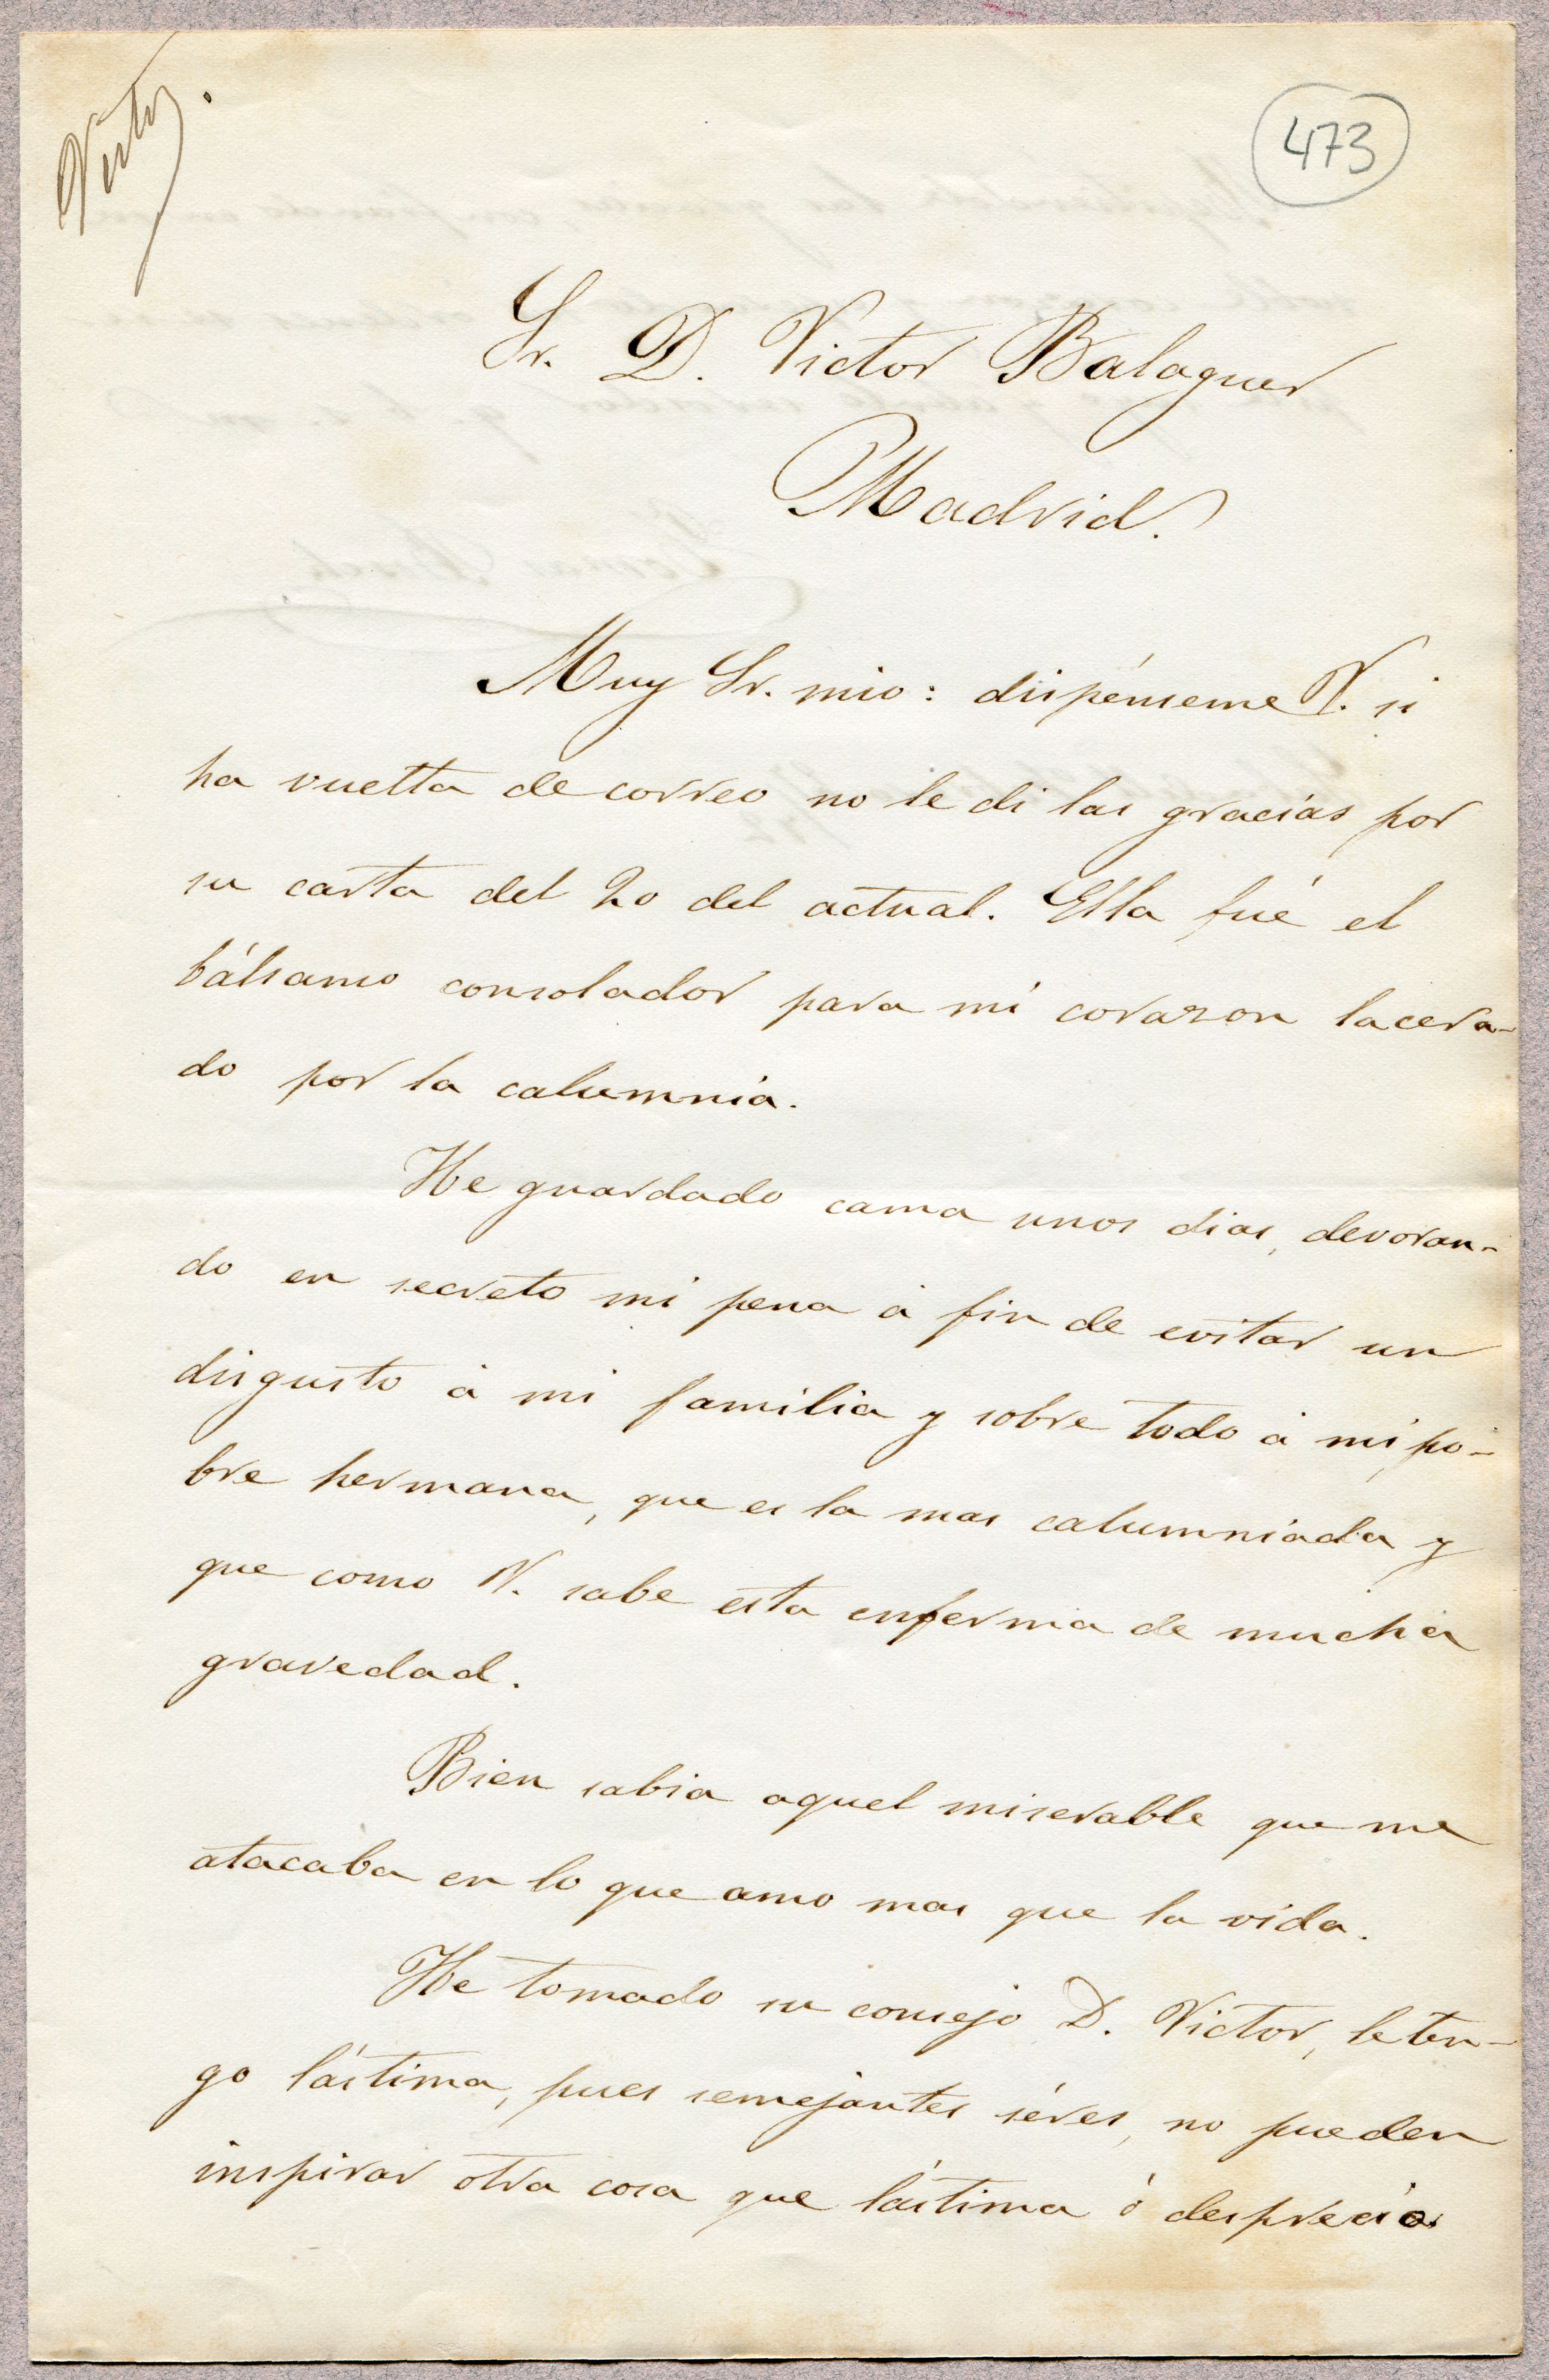 473
Sr. D. Victor Balaguer
Madrid.
Muy Sr. mio: dispénseme V. si
ha vuelta de correo no le di las gracias por
su carta del 20 del actual. Ella fué el
bálsamo consolador para mi corazon lacera-
do por la calumnia.
He guardado cama unos dias, devoran-
do en secreto mi pena á fin de evitar un
disgusto á mi familia y sobre todo á mi po-
bre hermana, que es la mas calumniada y
que como V. sabe esta enferma de mucha
gravedad.
Bien sabia aquel miserable que me
atacaba en lo que amo mas que la vida.
He tomado su consejo D. Victor, le ten-
go lástima, pues semejantes séres, no pueden
inspirar otra cosa que lástima ó desprecio